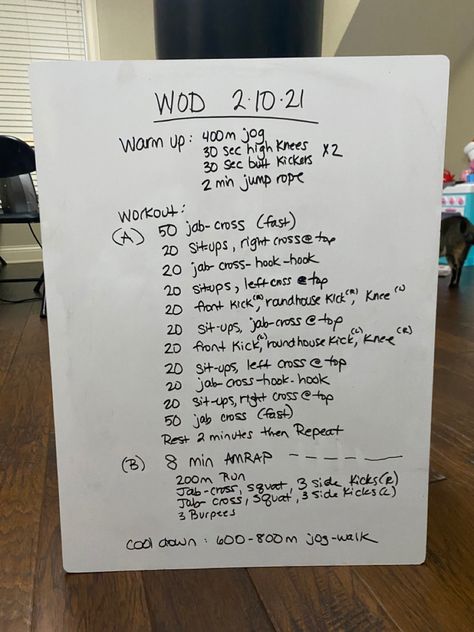 WOD 2.10.21
Warm up: 400m jog
30 sec high knees x2
30 sec butt kickers
2 min jump rope
Workout:
(A) 50 jab-cross (fast)
20 sit-ups, right cross @ top
20 jab-cross-hook-hook
20 situps, left cross @ top
20 front kick(R), roundhouse kick(R), knee(L)
20 sit-ups, jab-cross @ top
20 front kick(L), roundhouse kick(L), knee(R)
20 sit-ups, left cross @ top
20 jab-cross-hook-hook
20 sit-ups, right cross @ top
50 jab cross (fast)
Rest 2 minutes then Repeat
(B) 8 min AMRAP
200m Run
Jab-cross, squat, 3 side kicks(R)
Jab-cross, squat, 3 side kicks(L)
3 Burpees
cool down: 600-800m jog-walk